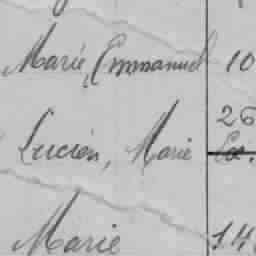 Marie, Emmanuel 10
26
Lucien, Marie
Marie 14